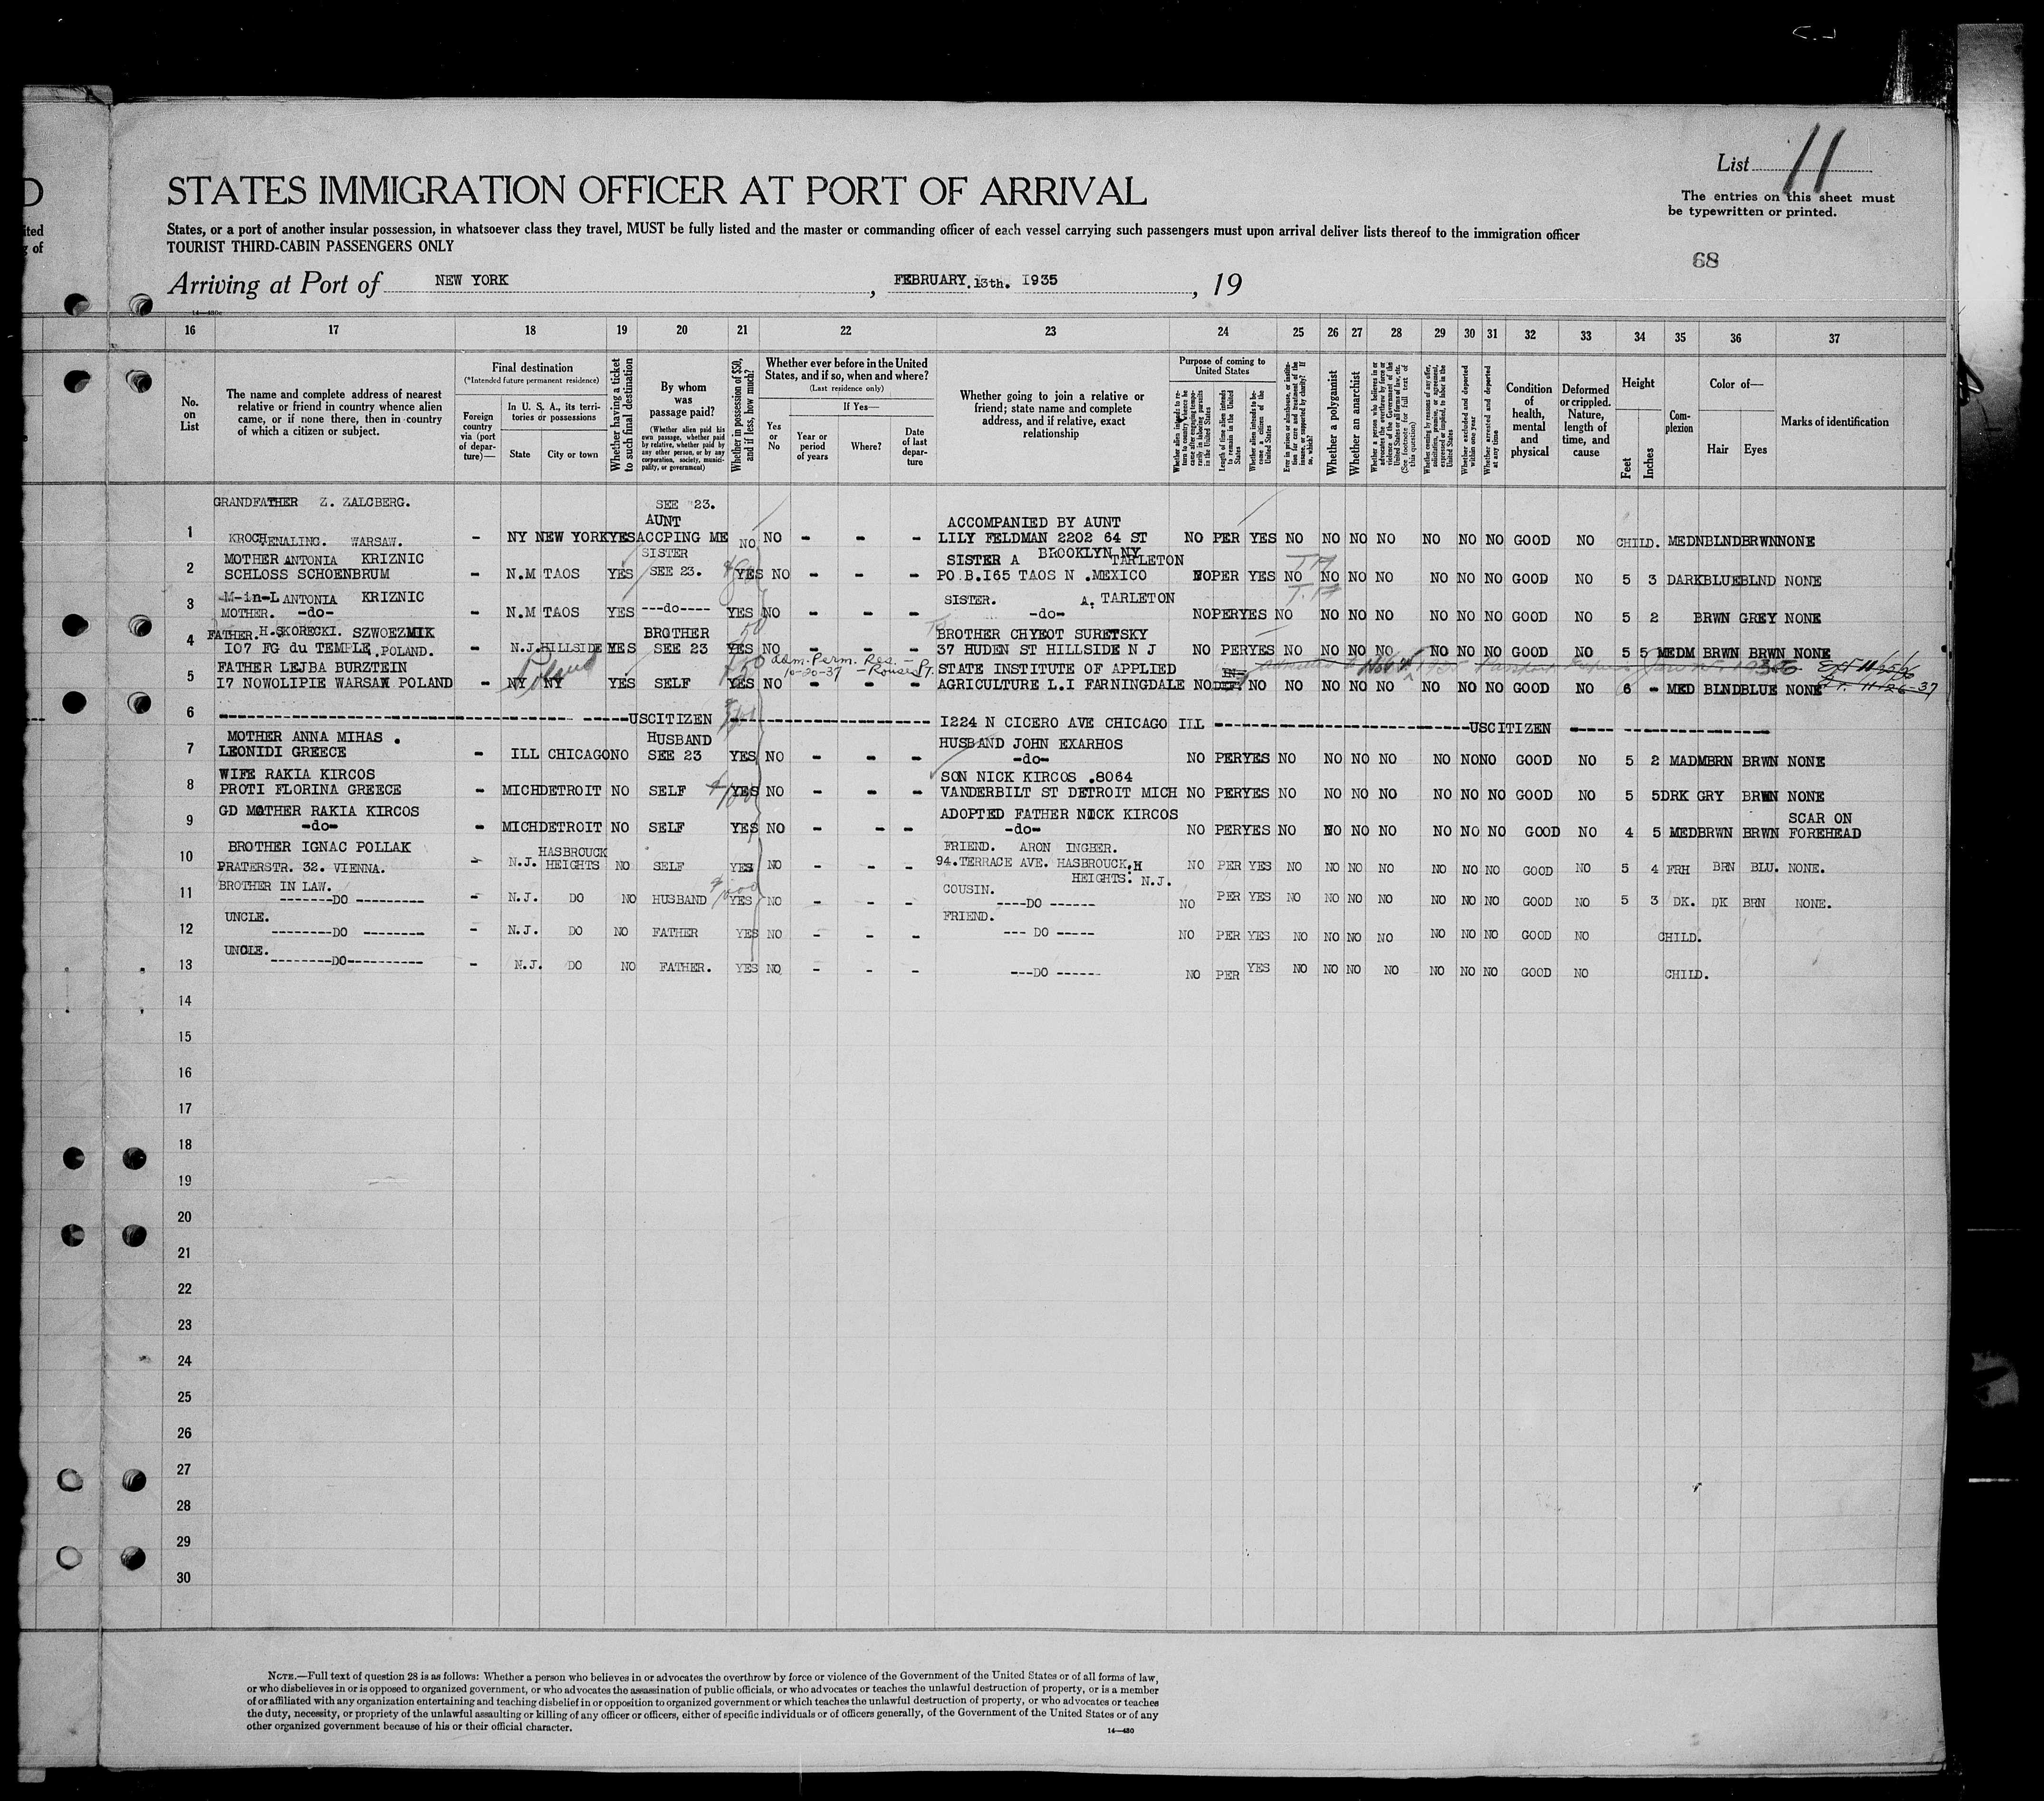 List 11
The entries on this sheet must
be typewritten or printed.
68
STATES IMMIGRATION OFFICER AT PORT OF ARRIVAL
States, or a port of another insular possession, in whatsoever class they travel, MUST be fully listed and the master or commanding officer of each vessel carrying such passengers must upon arrival deliver lists thereof to the immigration officer
TOURIST THIRD-CABIN PASSENGERS ONLY
Arriving at Port of NEW YORK, FEBRUARY. 13th. I935, 19
16 17 18 19 20 21 22 23 24 25 26 27 28 29 30 31 32 33 34 35 36 37
No. on List
The name and complete address of nearest relative or friend in country whence alien came, or if none there, then in country of which a citizen or subject.
Final destination
(*Intended future permanent residence)
Foreign country via (port of departure)—
In U. S. A., its territories or possessions
State
City or town
Whether having a ticket to such final destination
By whom was passage paid?
(Whether alien paid his own passage, whether paid by relative, whether paid by any other person, or by any corporation, society, municipality, or government)
Whether in possession of $50, and if less, how much?
Whether ever before in the United States, and if so, when and where?
(Last residence only)
Yes or No
If Yes—
Year or period of years
Where?
Date of last departure
Whether going to join a relative or friend; state name and complete address, and if relative, exact relationship
Purpose of coming to United States
Length of time alien intends to remain in the United States
Whether alien intends to become a citizen of the United States
Whether a polygamist
Whether an anarchist
Whether excluded and deported within one year
Whether arrested and deported at any time
Condition of health, mental and physical
Deformed or crippled. Nature, length of time, and cause
Height
Feet
Inches
Complexion
Color of—
Hair
Eyes
Marks of identification
GRANDFATHER Z. ZALCBERG. SEE 23.
AUNT ACCOMPANIED BY AUNT
1 KROCHENALINC. WARSAW. - NY NEW YORK YES ACCPING ME NO NO - - - LILY FELDMAN 2202 64 ST NO PER YES NO NO NO NO NO NO NO GOOD NO CHILD. MEDN BLND BRWN NONE
BROOKLYN NY
MOTHER ANTONIA KRIZNIC SISTER SISTER A TARLETON
2 SCHLOSS SCHOENBRUM - N.M TAOS YES SEE 23. YES NO - - - PO.B.I65 TAOS N .MEXICO NO PER YES NO NO NO NO NO NO NO GOOD NO 5 3 DARK BLUE BLND NONE
M-in-L ANTONIA KRIZNIC SISTER. A. TARLETON
3 MOTHER. -do- - N.M TAOS YES ---do---- YES NO - - - -do- NO PER YES NO NO NO NO NO NO NO GOOD NO 5 2 BRWN GREY NONE
FATHER. H.SKORECKI. SZWOEZMIK BROTHER BROTHER CHYEOT SURETSKY
4 I07 FG du TEMPLE.POLAND. - N.J. HILLSIDE YES SEE 23 YES NO - - - 37 HUDEN ST HILLSIDE N J NO PER YES NO NO NO NO NO NO NO GOOD NO 5 5 MEDM BRWN BRWN NONE
FATHER LEJBA BURZTEIN Poland $50 adm. Perm. Res. - 10-20-37 - Rouses Pt. STATE INSTITUTE OF APPLIED
5 I7 NOWOLIPIE WARSAW POLAND - NY NY YES SELF YES NO - - - AGRICULTURE L.I FARNINGDALE NO NO NO NO NO NO NO NO NO GOOD NO 6 - MED BLND BLUE NONE
6 USCITIZEN I224 N CICERO AVE CHICAGO ILL USCITIZEN
MOTHER ANNA MIHAS . HUSBAND HUSBAND JOHN EXARHOS
7 LEONIDI GREECE - ILL CHICAGO NO SEE 23 YES NO - - - -do- NO PER YES NO NO NO NO NO NO NO GOOD NO 5 2 MADM BRN BRWN NONE
WIFE RAKIA KIRCOS SON NICK KIRCOS .8064
8 PROTI FLORINA GREECE - MICH DETROIT NO SELF $100 YES NO - - - VANDERBILT ST DETROIT MICH NO PER YES NO NO NO NO NO NO NO GOOD NO 5 5 DRK GRY BRWN NONE
GD MOTHER RAKIA KIRCOS ADOPTED FATHER NICK KIRCOS SCAR ON
9 -do- - MICH DETROIT NO SELF YES NO - - - -do- NO PER YES NO NO NO NO NO NO NO GOOD NO 4 5 MED BRWN BRWN FOREHEAD
BROTHER IGNAC POLLAK HASBROUCK FRIEND. ARON INGBER.
10 PRATERSTR. 32. VIENNA. - N.J. HEIGHTS NO SELF YES NO - - - 94.TERRACE AVE. HASBROUCK.H NO PER YES NO NO NO NO NO NO NO GOOD NO 5 4 FRH BRN BLU. NONE.
HEIGHTS: N.J.
BROTHER IN LAW. COUSIN.
11 -------DO --------- - N.J. DO NO HUSBAND YES NO - - - ----DO ------ NO PER YES NO NO NO NO NO NO NO GOOD NO 5 3 DK. DK BRN NONE.
UNCLE. FRIEND.
12 --------DO -------- - N.J. DO NO FATHER YES NO - - - --- DO ----- NO PER YES NO NO NO NO NO NO NO GOOD NO CHILD.
UNCLE.
13 --------DO---------- - N.J. DO NO FATHER. YES NO - - - ---DO ------ NO PER YES NO NO NO NO NO NO NO GOOD NO CHILD.
14
15
16
17
18
19
20
21
22
23
24
25
26
27
28
29
30
NOTE.—Full text of question 28 is as follows: Whether a person who believes in or advocates the overthrow by force or violence of the Government of the United States or of all forms of law,
or who disbelieves in or is opposed to organized government, or who advocates the assassination of public officials, or who advocates or teaches the unlawful destruction of property, or is a member
of or affiliated with any organization entertaining and teaching disbelief in or opposition to organized government or which teaches the unlawful destruction of property, or who advocates or teaches
the duty, necessity, or propriety of the unlawful assaulting or killing of any officer or officers, either of specific individuals or of officers generally, of the Government of the United States or of any
other organized government because of his or their official character.
14—430